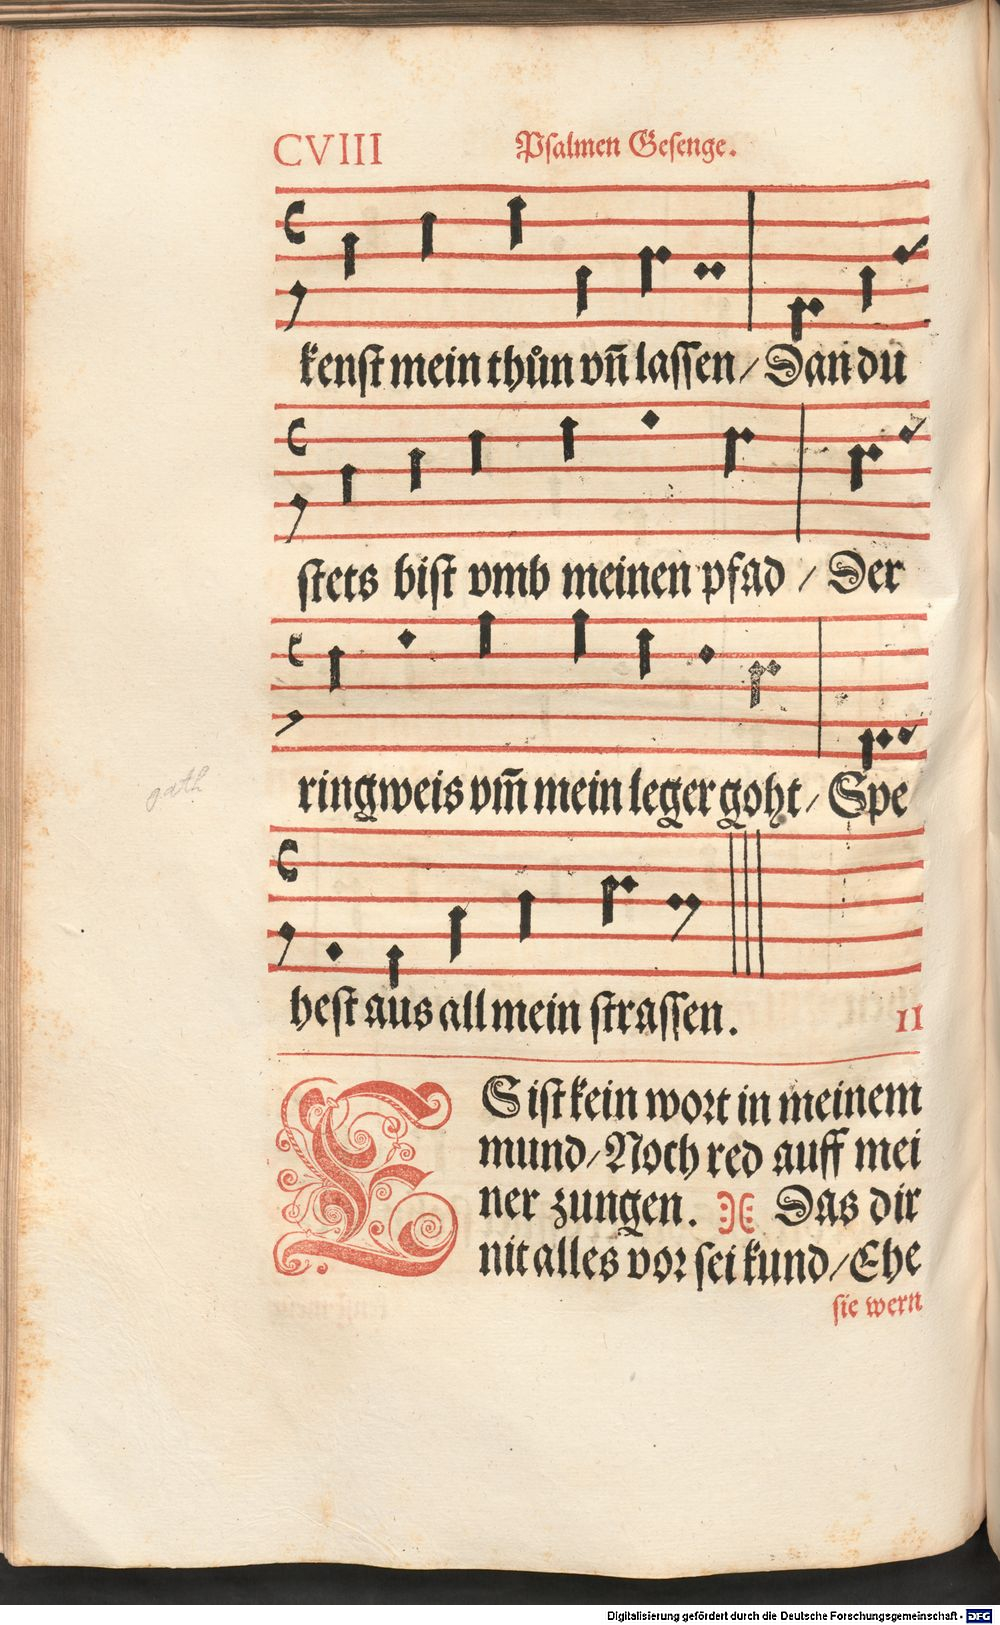 CVIII Psalmen Gesenge.
kenst mein thůn vñ lassen / Dan du
stets bist vmb meinen pfad / Der
ringweis vm̃ mein leger goht / Spe
hest aus all mein strassen.
II
ES ist kein wort in meinem
mund / Noch red auff mei
ner zungen. Das dir
nit alles vor sei kund / Ehe
sie wern
gath
Digitalisierung gefördert durch die Deutsche Forschungsgemeinschaft - DFG